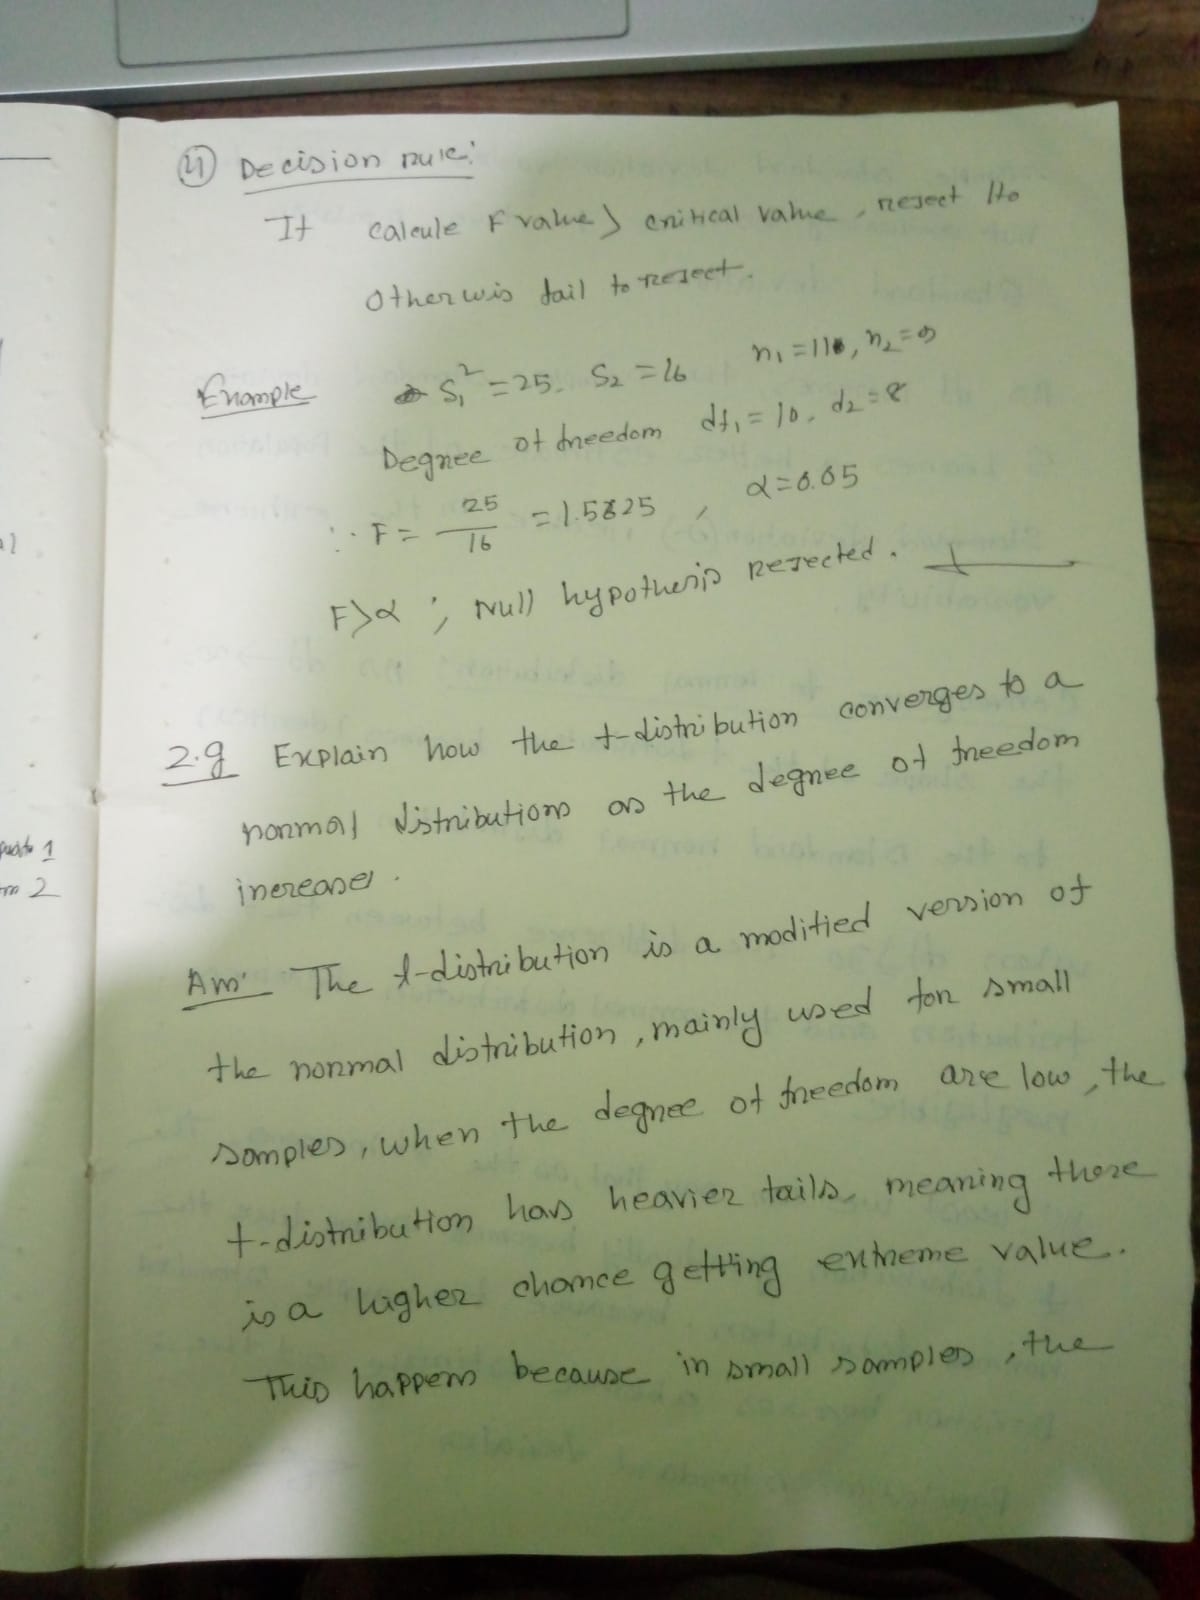 ④ Decision rule:
If calcule F value > critical value, reject H0
otherwis fail to reject.
Example S₁² = 25. S₂ = 16 n₁ = 11, n₂ = 9
Degree of freedom df₁ = 10. d₂ = 8
∴ F = 25/16 = 1.5625, α = 0.05
F > α ; Null hypothesis rejected.
2.g Explain how the t-distribution converges to a
normal distributions as the degree of freedom
increases.
Ans: The t-distribution is a modified version of
the normal distribution, mainly used for small
samples, when the degree of freedom are low, the
t-distribution has heavier tails, meaning there
is a higher chance getting extreme value.
This happens because in small samples, the
1
2